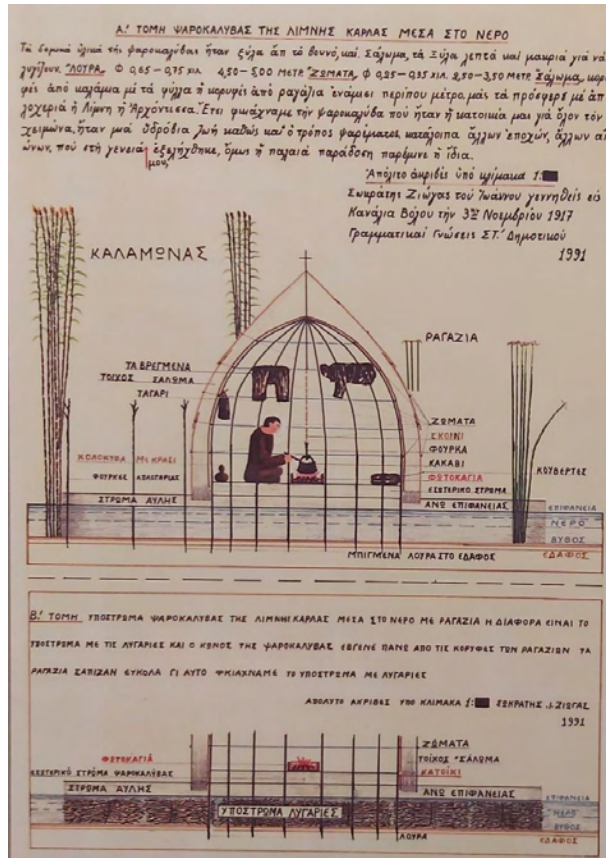 Α.' ΤΟΜΗ ΨΑΡΟΚΑΛΥΒΑΣ ΤΗΣ ΛΙΜΝΗΣ ΚΑΡΛΑΣ ΜΕΣΑ ΣΤΟ ΝΕΡΟ
Τὰ δομικὰ ὑλικὰ τῆς ψαροκαλύβας ἦταν ξύλα ἀπ τὸ βουνό, καὶ Σάλωμα, τὰ ξύλα λεπτὰ καὶ μακριὰ γιὰ νὰ
λυγίζουν. "ΛΟΥΡΑ. Φ 0,65-0,75 ΧΙΛ. 4,50-5,00 ΜΕΤΡ. "ΖΩΜΑΤΑ, Φ 0,25-0,35 ΧΙΛ. 2,50-3,50 ΜΕΤΡ. Σάλωμα, κορυ
φὲς ἀπὸ καλάμια μὲ τὰ φύλλα ἢ κορυφὲς ἀπὸ ραγάζια ἑνάμισι περίπου μέτρο, μᾶς τὰ πρόσφερε μὲ ἁπ
λοχεριὰ ἡ Λίμνη ἡ Ἀρχόντισσα. Ἔτσι φτιάχναμε τὴν ψαροκαλύβα ποὺ ἦταν ἡ κατοικία μας γιὰ ὅλον τὸν
χειμώνα, ἦταν μιὰ ὑδρόβια ζωὴ καθὼς καὶ ὁ τρόπος ψαρέματος, κατάλοιπα ἄλλων ἐποχῶν, ἄλλων αἰ
ώνων, ποὺ στὴ γενειά μου, ἐξελήχθηκε, ὅμως ἡ παλαιὰ παράδοση παρέμινε ἡ ἴδια.
Ἀπόλιτο ἀκριβὲς ὑπὸ κλίμακα 1:
Σωκράτης Ζιώγας τοῦ Ἰωάννου γεννηθεὶς εἰς
Κανάλια Βόλου τὴν 3ην Νοεμβρίου 1917
Γραμματικαὶ Γνώσεις ΣΤ.' Δημοτικοῦ
1991
ΚΑΛΑΜΩΝΑΣ
ΡΑΓΑΖΙΑ
ΤΑ ΒΡΕΓΜΕΝΑ
ΤΟΙΧΟΣ ΣΑΛΩΜΑ
ΤΑΓΑΡΙ
ΚΟΛΟΚΥΘΑ ΜΕ ΚΡΑΣΙ
ΦΟΥΡΚΕΣ
ΣΤΡΩΜΑ ΑΥΛΗΣ
ΖΩΜΑΤΑ
ΣΚΟΙΝΙ
ΦΟΥΡΚΑ
ΚΑΚΑΒΙ
ΦΩΤΟΚΑΓΙΑ
ΕΣΩΤΕΡΙΚΟ ΣΤΡΩΜΑ
ΑΝΩ ΕΠΙΦΑΝΕΙΑΣ
ΚΟΥΒΕΡΤΕΣ
ΕΠΙΦΑΝΕΙΑ
ΝΕΡΟ
ΒΥΘΟΣ
ΕΔΑΦΟΣ
ΜΠΙΓΜΕΝΑ ΛΟΥΡΑ ΣΤΟ ΕΔΑΦΟΣ
Β.' ΤΟΜΗ ΥΠΟΣΤΡΩΜΑ ΨΑΡΟΚΑΛΥΒΑΣ ΤΗΣ ΛΙΜΝΗΣ ΚΑΡΛΑΣ ΜΕΣΑ ΣΤΟ ΝΕΡΟ ΜΕ ΡΑΓΑΖΙΑ Η ΔΙΑΦΟΡΑ ΕΙΝΑΙ ΤΟ
ΥΠΟΣΤΡΩΜΑ ΜΕ ΤΙΣ ΛΥΓΑΡΙΕΣ ΚΑΙ Ο ΚΩΝΟΣ ΤΗΣ ΨΑΡΟΚΑΛΥΒΑΣ ΕΒΓΕΝΕ ΠΑΝΩ ΑΠΟ ΤΙΣ ΚΟΡΥΦΕΣ ΤΩΝ ΡΑΓΑΖΙΩΝ ΤΑ
ΡΑΓΑΖΙΑ ΣΑΠΙΖΑΝ ΕΥΚΟΛΑ ΓΙ ΑΥΤΟ ΦΚΙΑΧΝΑΜΕ ΤΟ ΥΠΟΣΤΡΩΜΑ ΜΕ ΛΥΓΑΡΙΕΣ
ΑΠΟΛΥΤΟ ΑΚΡΙΒΕΣ ΥΠΟ ΚΛΙΜΑΚΑ 1: ΣΩΚΡΑΤΗΣ .Ι. ΖΙΩΓΑΣ
1991
ΖΩΜΑΤΑ
ΤΟΙΧΟΣ "ΣΑΛΩΜΑ
ΚΑΤΟΙΚΙ
ΑΝΩ ΕΠΙΦΑΝΕΙΑΣ
ΦΩΤΟΚΑΓΙΑ
ΕΣΩΤΕΡΙΚΟ ΣΤΡΩΜΑ ΨΑΡΟΚΑΛΥΒΑΣ
ΣΤΡΩΜΑ ΑΥΛΗΣ
ΥΠΟΣΤΡΩΜΑ ΛΥΓΑΡΙΕΣ
ΕΠΙΦΑΝΕΙΑ
ΝΕΡΟ
ΒΥΘΟΣ
ΕΔΑΦΟΣ
ΛΟΥΡΑ